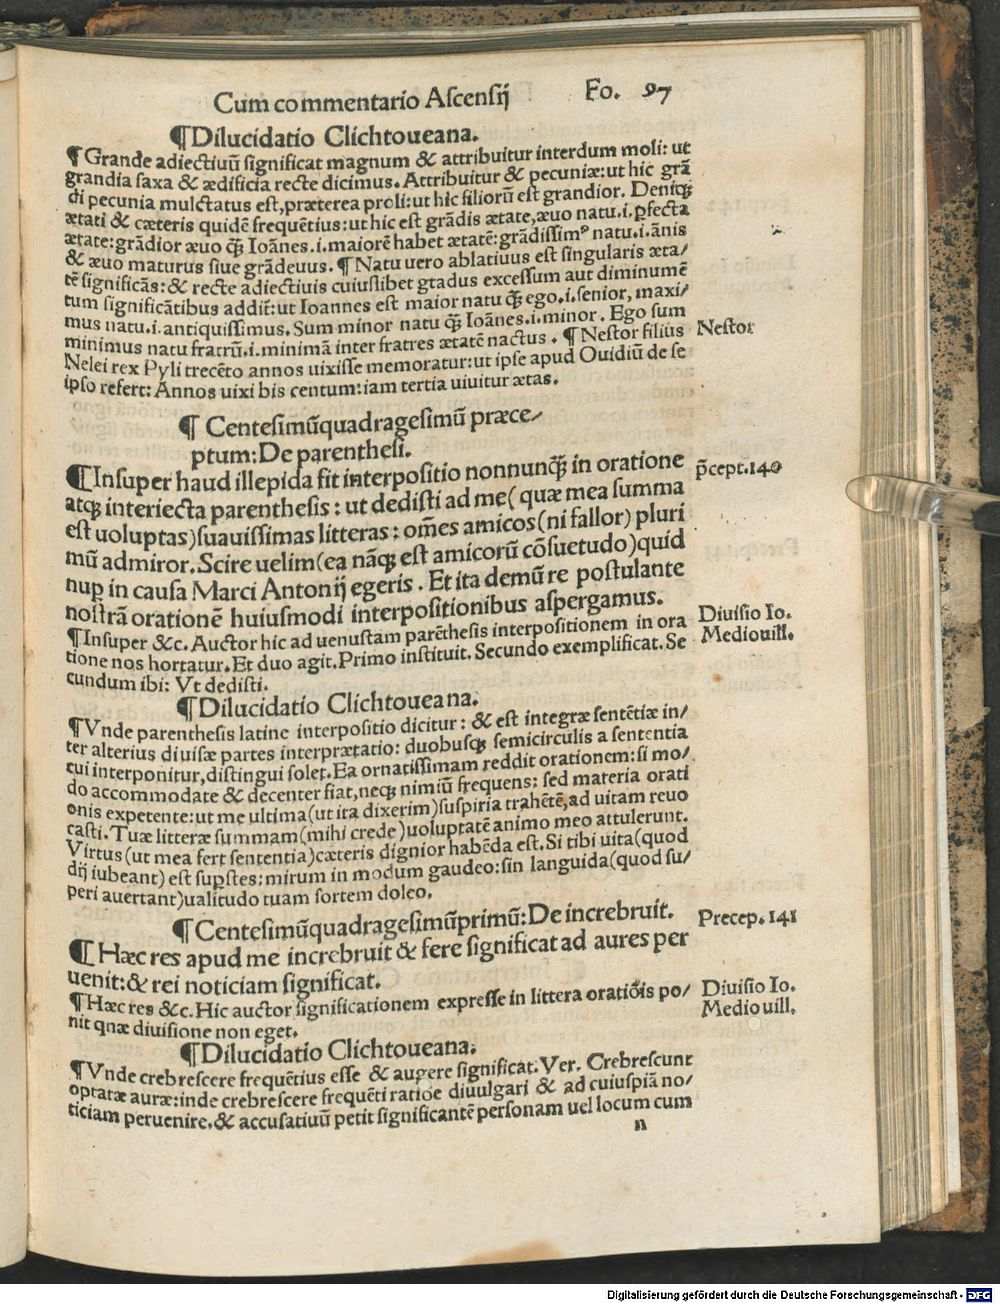 Cum commentario Ascensij Fo. 97
¶Dilucidatio Clichtoueana.
¶Grande adiectiuū significat magnum & attribuitur interdum moli: ut
grandia saxa & ædificia recte dicimus. Attribuitur & pecuniæ: ut hic grā
di pecunia mulctatus est, præterea proli: ut hic filiorū est grandior. Deniqꝫ
ætati & cæteris quidē frequētius: ut hic est grādis ætate, æuo natu .i. ꝑfecta
ætate: grādior æuo qꝫ̃ Ioānes .i. maiorē habet ætatē: grādissimꝰ natu .i. ānis
& æuo maturus siue grādeuus. ¶Natu uero ablatiuus est singularis æta/
tē significās: & recte adiectiuis cuiuslibet gradus excessum aut diminumē
tum significātibus addit̃: ut Ioannes est maior natu qꝫ̃ ego .i. senior, maxi/
mus natu .i. antiquissimus. Sum minor natu qꝫ̃ Ioānes .i. minor. Ego sum
minimus natu fratrū .i. minimā inter fratres ætatē nactus. ¶Nestor filius Nestor
Nelei rex Pyli trecēto annos uixisse memoratur: ut ipse apud Ouidiū de se
ipso refert: Annos uixi bis centum: iam tertia uiuitur ætas.
¶ Centesimūquadragesimū præce/
ptum: De parenthesi.
¶Insuper haud illepida fit interpositio nonnunqꝫ̃ in oratione p̄cept. 140
atqꝫ interiecta parenthesis: ut dedisti ad me (quæ mea summa
est uoluptas) suauissimas litteras: om̄es amicos (ni fallor) pluri
mū admiror. Scire uelim (ea nāqꝫ est amicorū cōsuetudo) quid
nuꝑ in causa Marci Antonij egeris. Et ita demū re postulante
nostrā orationē huiusmodi interpositionibus aspergamus.
¶Insuper &c. Auctor hic ad uenustam parēthesis interpositionem in ora Diuisio Io.
tione nos hortatur. Et duo agit. Primo instituit. Secundo exemplificat. Se Mediouill.
cundum ibi: Vt dedisti.
¶Dilucidatio Clichtoueana.
¶Vnde parenthesis latine interpositio dicitur: & est integræ sentētiæ in/
ter alterius diuisæ partes interprætatio: duobusqꝫ semicirculis a sententia
cui interponitur, distingui solet. Ea ornatissimam reddit orationem: si mo/
do accommodate & decenter fiat, neqꝫ nimiū frequens: sed materia orati
onis expetente: ut me ultima (ut ita dixerim) suspiria trahētē, ad uitam reuo
casti. Tuæ litteræ summam (mihi crede) uoluptatē animo meo attulerunt.
Virtus (ut mea fert sententia) cæteris dignior habēda est. Si tibi uita (quod
dij iubeant) est suꝑstes: mirum in modum gaudeo: sin languida (quod su/
peri auertant) ualitudo tuam sortem doleo.
¶ Centesimūquadragesimūprimū: De increbruit. Precep. 141
¶ Hæc res apud me increbruit & fere significat ad aures per
uenit: & rei noticiam significat.
¶Hæc res &c. Hic auctor significationem expresse in littera oratiōis po/ Diuisio Io.
nit qnæ diuisione non eget. Mediouill.
¶Dilucidatio Clichtoueana.
¶Vnde crebrescere frequētius esse & augere significat. Ver. Crebrescunt
optatæ auræ: inde crebrescere frequēti ratiōe diuulgari & ad cuiuspiā no/
ticiam peruenire. & accusatiuū petit significantē personam uel locum cum
n
Digitalisierung gefördert durch die Deutsche Forschungsgemeinschaft - DFG